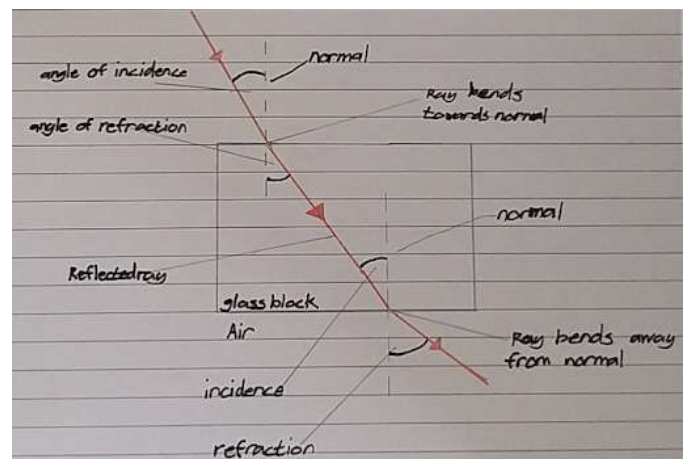 normal
angle of incidence
Ray bends
towards normal
angle of refraction
normal
Reflected ray
glass block
Air
Ray bends away
from normal
incidence
refraction